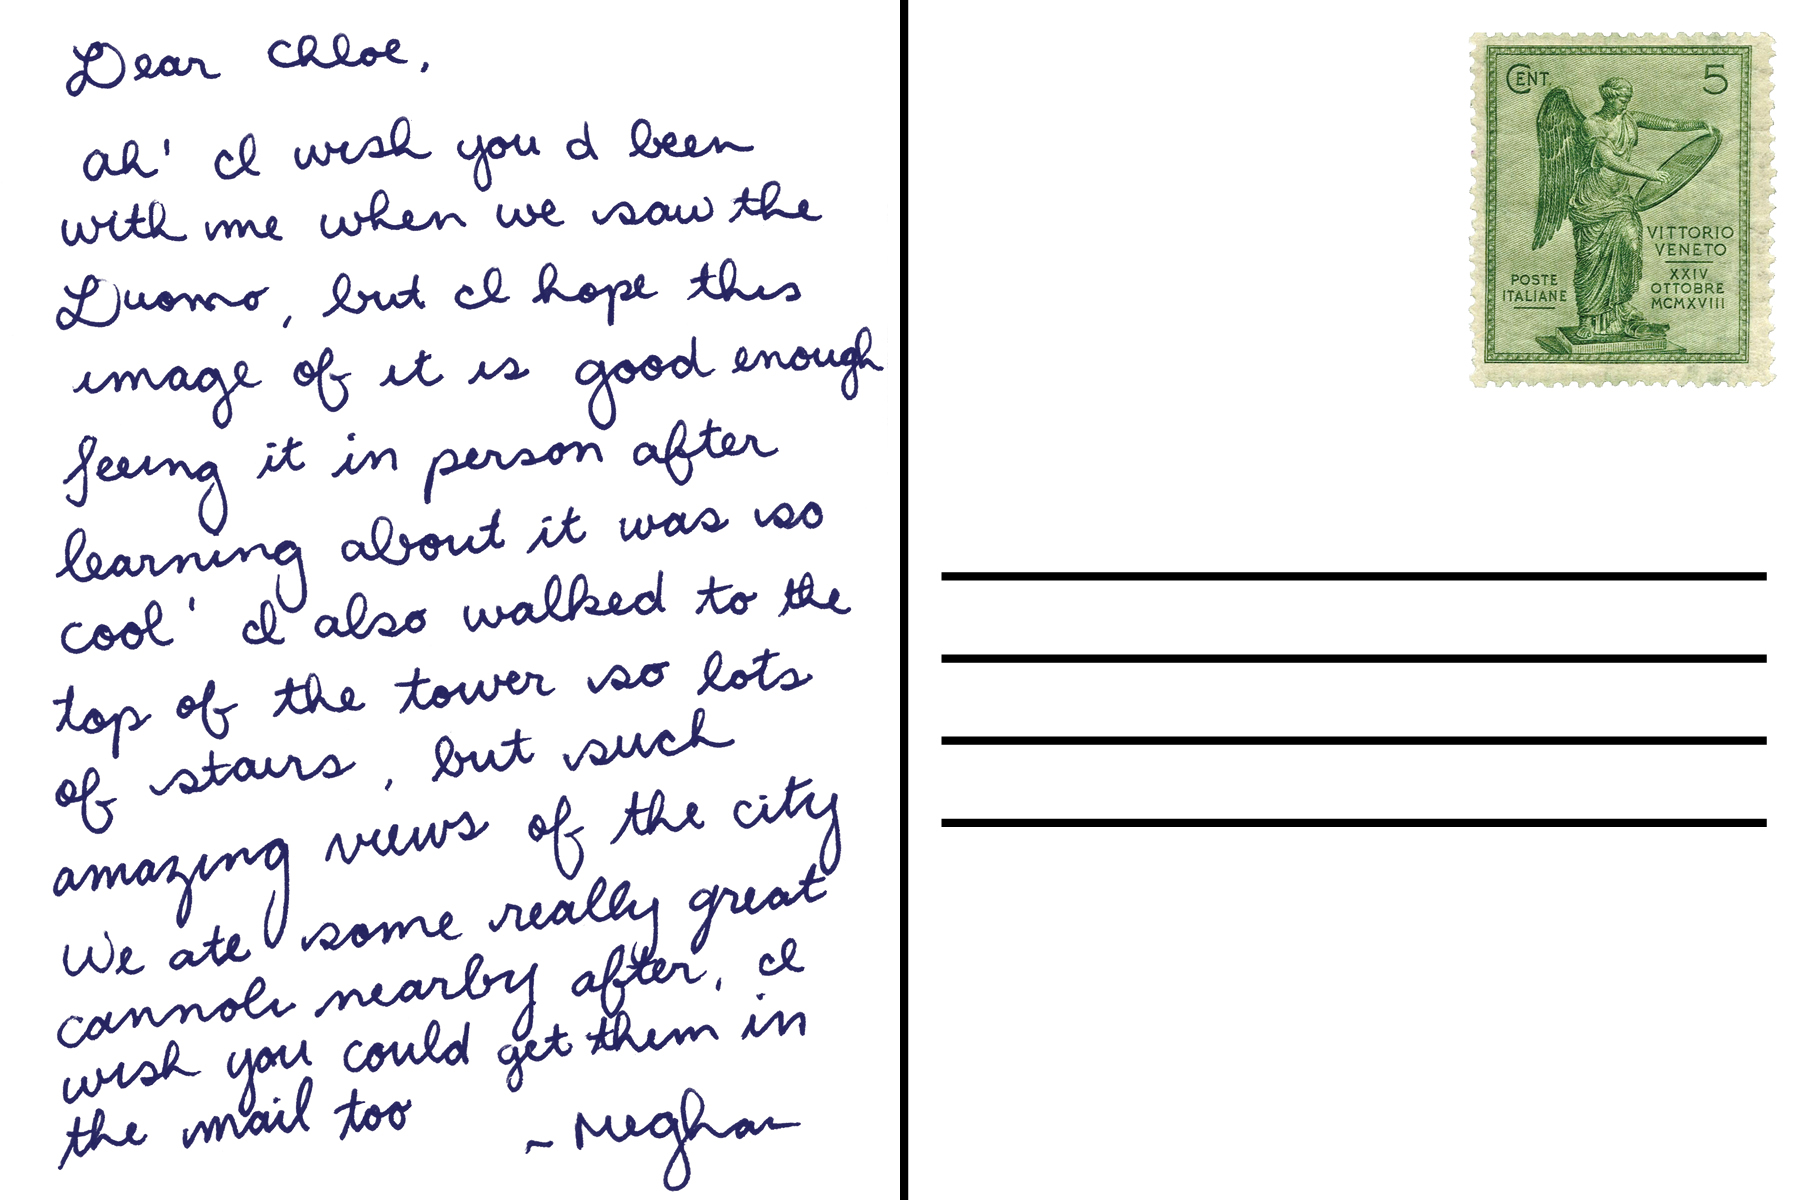 Dear Chloe,
ah' I wish you d been
with me when we saw the
Duomo, but I hope this
image of it is good enough
seeing it in person after
learning about it was so
cool' I also walked to the
top of the tower so lots
of stairs, but such
amazing views of the city
We ate some really great
cannoli nearby after, I
wish you could get them in
the mail too
~ Meghan
CENT. 5
VITTORIO
VENETO
XXIV
OTTOBRE
MCMXVIII
POSTE
ITALIANE